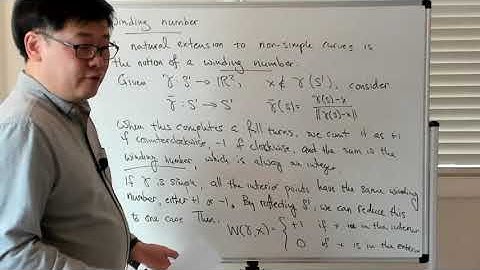 Winding number
natural extension to non-simple curves is
the notion of a winding number.
Given γ: S' → ℝ², x ∉ γ(S'), consider
γ̄: S' → S' γ̄(s) = γ(s)-x / ||γ(s)-x||
When this completes a full turns, we count it as +1
if counterclockwise, -1 if clockwise, and the sum is the
winding number, which is always an integer.
If γ is simple, all the interior points have the same winding
number, either +1 or -1. By reflecting S', we can reduce this
to one case. Then,
W(γ,x) = { +1 if x is in the interior
0 if x is in the exterior